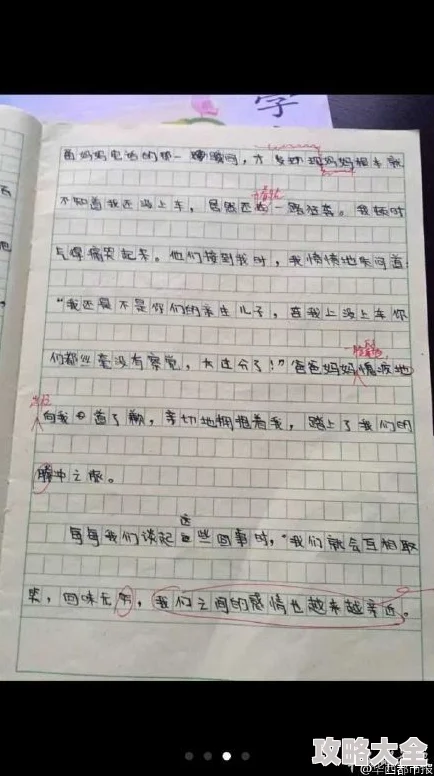 学
妈妈电话的那一瞬间,才发现妈妈根本就
不知道我还没上车,居然还在一路狂奔。我顿时
气得痛哭起来。他们接到我时,我愤愤地质问道:
“我还是不是你们的亲生儿子,连我上没上车你
们都丝毫没有察觉,太过分了!”爸爸妈妈愧疚地
向我道了歉,亲切地拥抱着我,踏上了我们的
腾冲之旅。
每每我们谈起这些回事时,“我们就会互相取
笑,回味无穷,我们之间的感情也越来越亲近。
攻略大全
@华西都市报